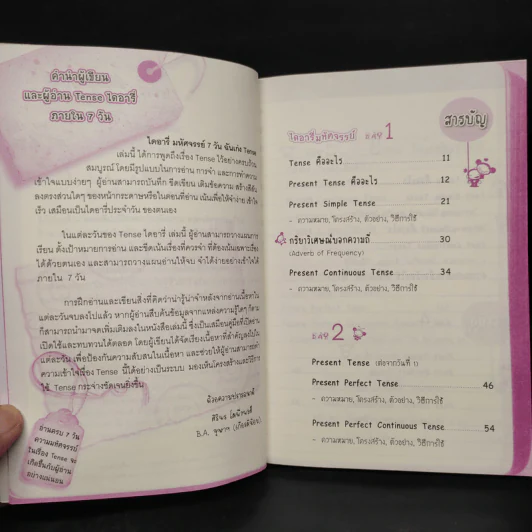 คำนำผู้เขียน
และผู้อ่าน Tense ไดอารี่
ภายใน 7 วัน
ไดอารี่ มหัศจรรย์ 7 วัน ฉันเก่ง Tense
เล่มนี้ ได้การพูดถึงเรื่อง Tense ไว้อย่างครบถ้วน
สมบูรณ์ โดยมีรูปแบบในการอ่าน การจำ และการทำความ
เข้าใจแบบง่ายๆ ผู้อ่านสามารถบันทึก ขีดเขียน เติมข้อความ สร้างสีสัน
ลงตรงส่วนใดๆ ของหน้ากระดาษหรือในตอนที่อ่าน เน้นเพื่อให้จำง่าย เข้าใจ
เร็ว เสมือนเป็นไดอารี่ประจำวัน ของตนเอง
ในแต่ละวันของ Tense ไดอารี่ เล่มนี้ ผู้อ่านสามารถวางแผนการ
เรียน ตั้งเป้าหมายการอ่าน และขีดเน้นเรื่องที่ควรจำ ที่ต้องเน้นเฉพาะเรื่อง
ได้ด้วยตนเอง และสามารถวางแผนอ่านให้จบ จำได้ง่ายอย่างเข้าใจได้
ภายใน 7 วัน
การฝึกอ่านและเขียนสิ่งที่คิดว่าน่ารู้น่าจำหลังจากอ่านเนื้อหาใน
แต่ละวันจบลงไปแล้ว หากผู้อ่านสืบค้นข้อมูลจากแหล่งความรู้ใดๆ ก็ตาม
ก็สามารถนำมาจดเพิ่มเติมลงในหนังสือเล่มนี้ ซึ่งเป็นเสมือนคู่มือที่เปิดอ่าน
เปิดใช้และทบทวนได้ตลอด โดยผู้เขียนได้จัดเรียงเนื้อหาที่สำคัญลงไปใน
แต่ละวัน เพื่อป้องกันความสับสนในเนื้อหา และช่วยให้ผู้อ่านสามารถทำ
ความเข้าใจเรื่อง Tense นี้ได้อย่างเป็นระบบ มองเห็นโครงสร้างและวิธีการ
ใช้ Tense กระจ่างชัดเจนยิ่งขึ้น
ด้วยความปรารถนาดี
B.A. จุฬาฯ (เกียรตินิยม)
อ่านครบ 7 วัน
ความมหัศจรรย์
ในเรื่อง Tense จะ
เกิดขึ้นกับผู้อ่าน
อย่างแน่นอน
สารบัญ
ไดอารี่มหัศจรรย์ Day 1
Tense คืออะไร 11
Present Tense คืออะไร 12
Present Simple Tense 21
- ความหมาย, โครงสร้าง, ตัวอย่าง, วิธีการใช้
กริยาวิเศษณ์บอกความถี่ 30
(Adverb of Frequency)
Present Continuous Tense 34
- ความหมาย, โครงสร้าง, ตัวอย่าง, วิธีการใช้
Day 2
Present Tense (ต่อจากวันที่ 1)
Present Perfect Tense 46
- ความหมาย, โครงสร้าง, ตัวอย่าง, วิธีการใช้
Present Perfect Continuous Tense 54
- ความหมาย, โครงสร้าง, ตัวอย่าง, วิธีการใช้